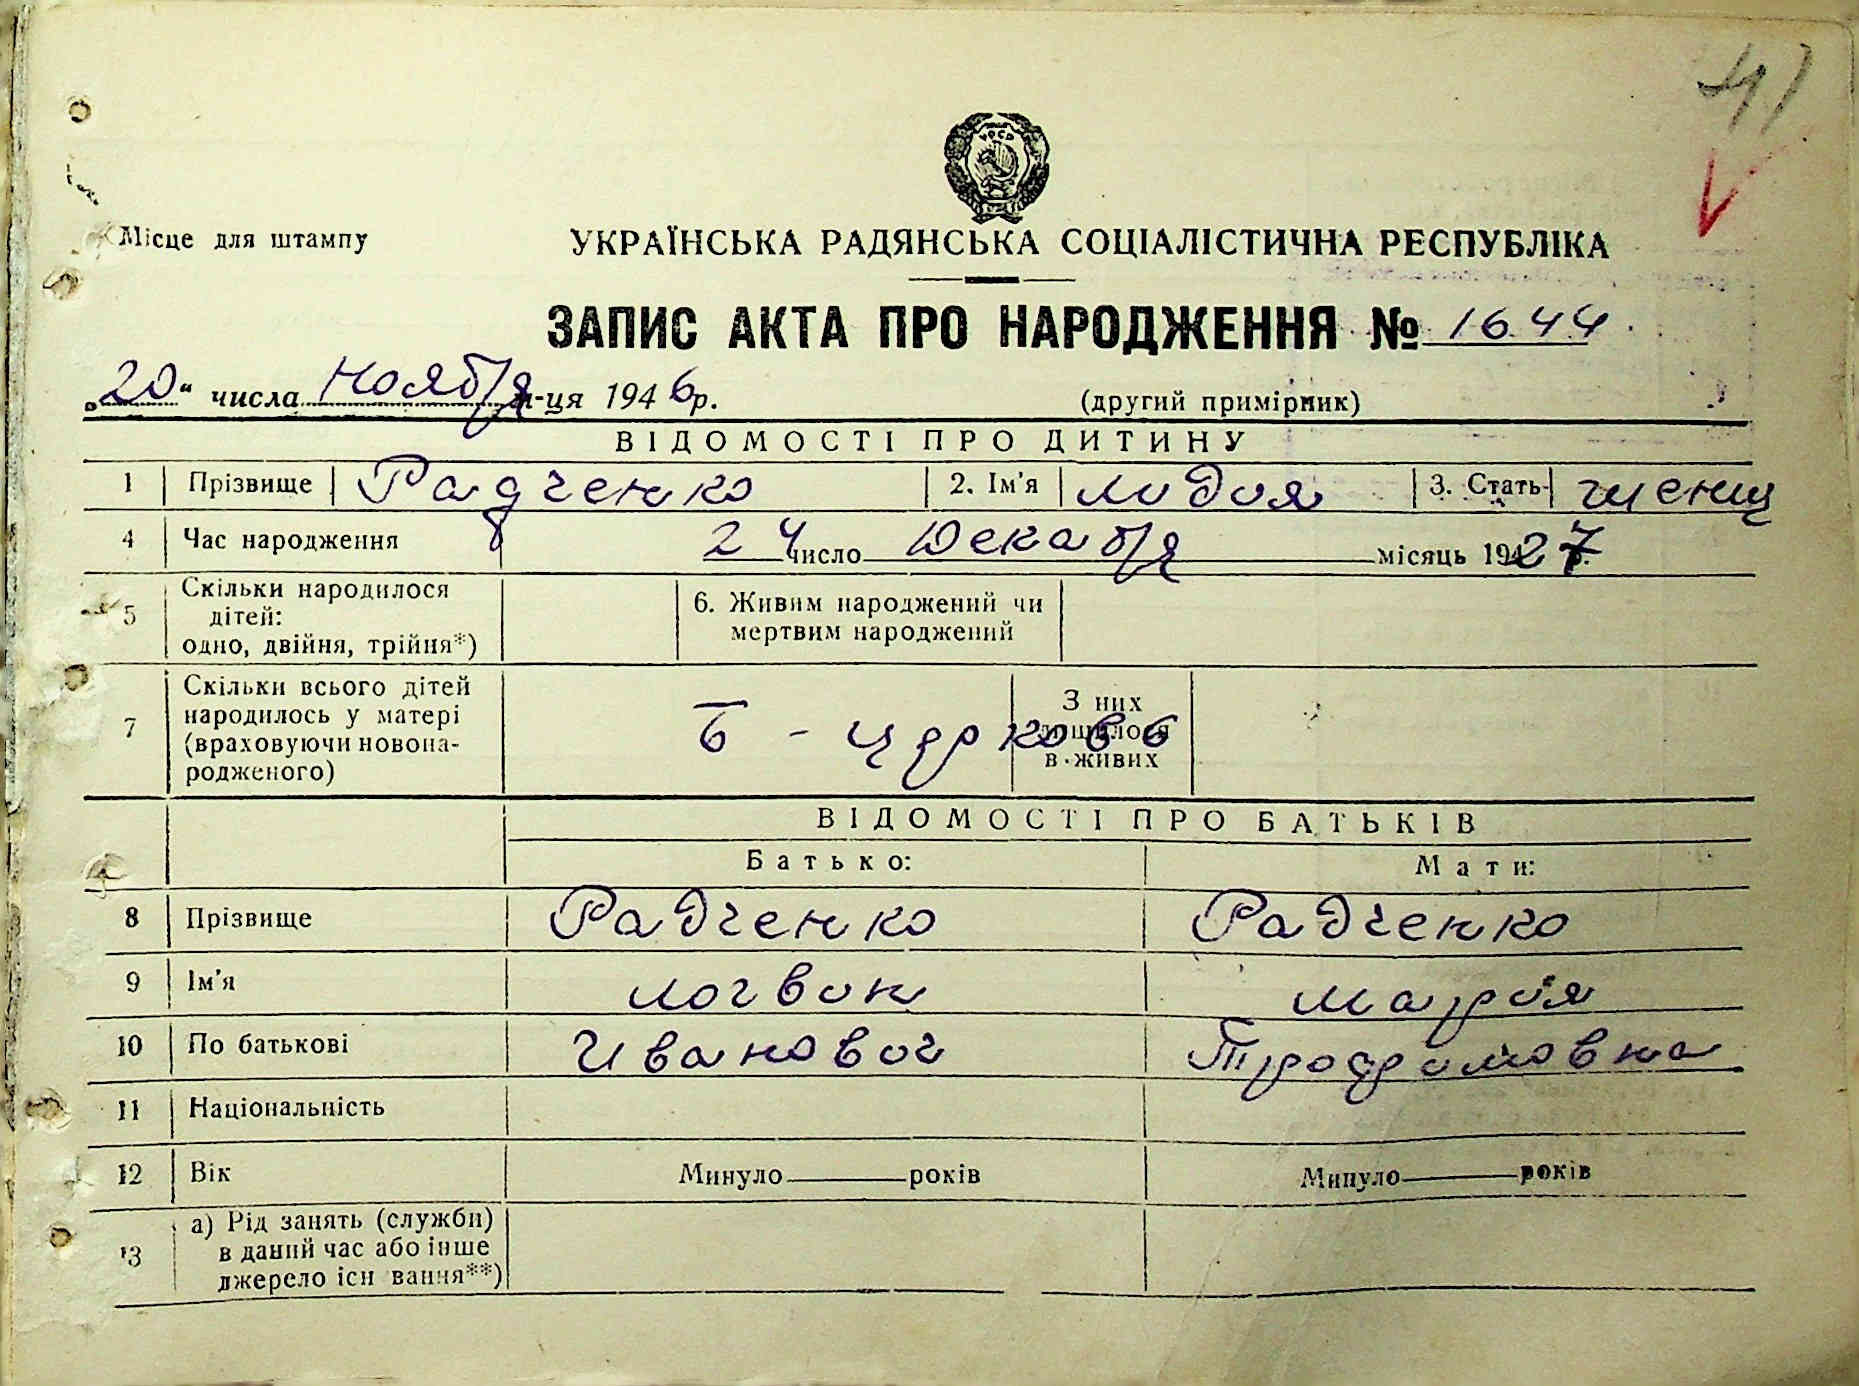 41
УРСР
Місце для штампу
УКРАЇНСЬКА РАДЯНСЬКА СОЦІАЛІСТИЧНА РЕСПУБЛІКА
ЗАПИС АКТА ПРО НАРОДЖЕННЯ № 1644
„20“ числа Ноября м-ця 1946 р.
(другий примірник)
ВІДОМОСТІ ПРО ДИТИНУ
1 Прізвище Радченко 2. Ім'я Лидия 3. Стать женщ
4 Час народження 24 число Декабря місяць 1927
5 Скільки народилося дітей: одно, двійня, трійня*) 6. Живим народжений чи мертвим народжений
7 Скільки всього дітей народилось у матері (враховуючи новонародженого) Б - Церковь З них лишилося в живих
ВІДОМОСТІ ПРО БАТЬКІВ
Батько: Мати:
8 Прізвище Радченко Радченко
9 Ім'я Логвин Мария
10 По батькові Иванович Трофимовна
11 Національність
12 Вік Минуло років Минуло років
13 а) Рід занять (служби) в даний час або інше джерело існ вання**)